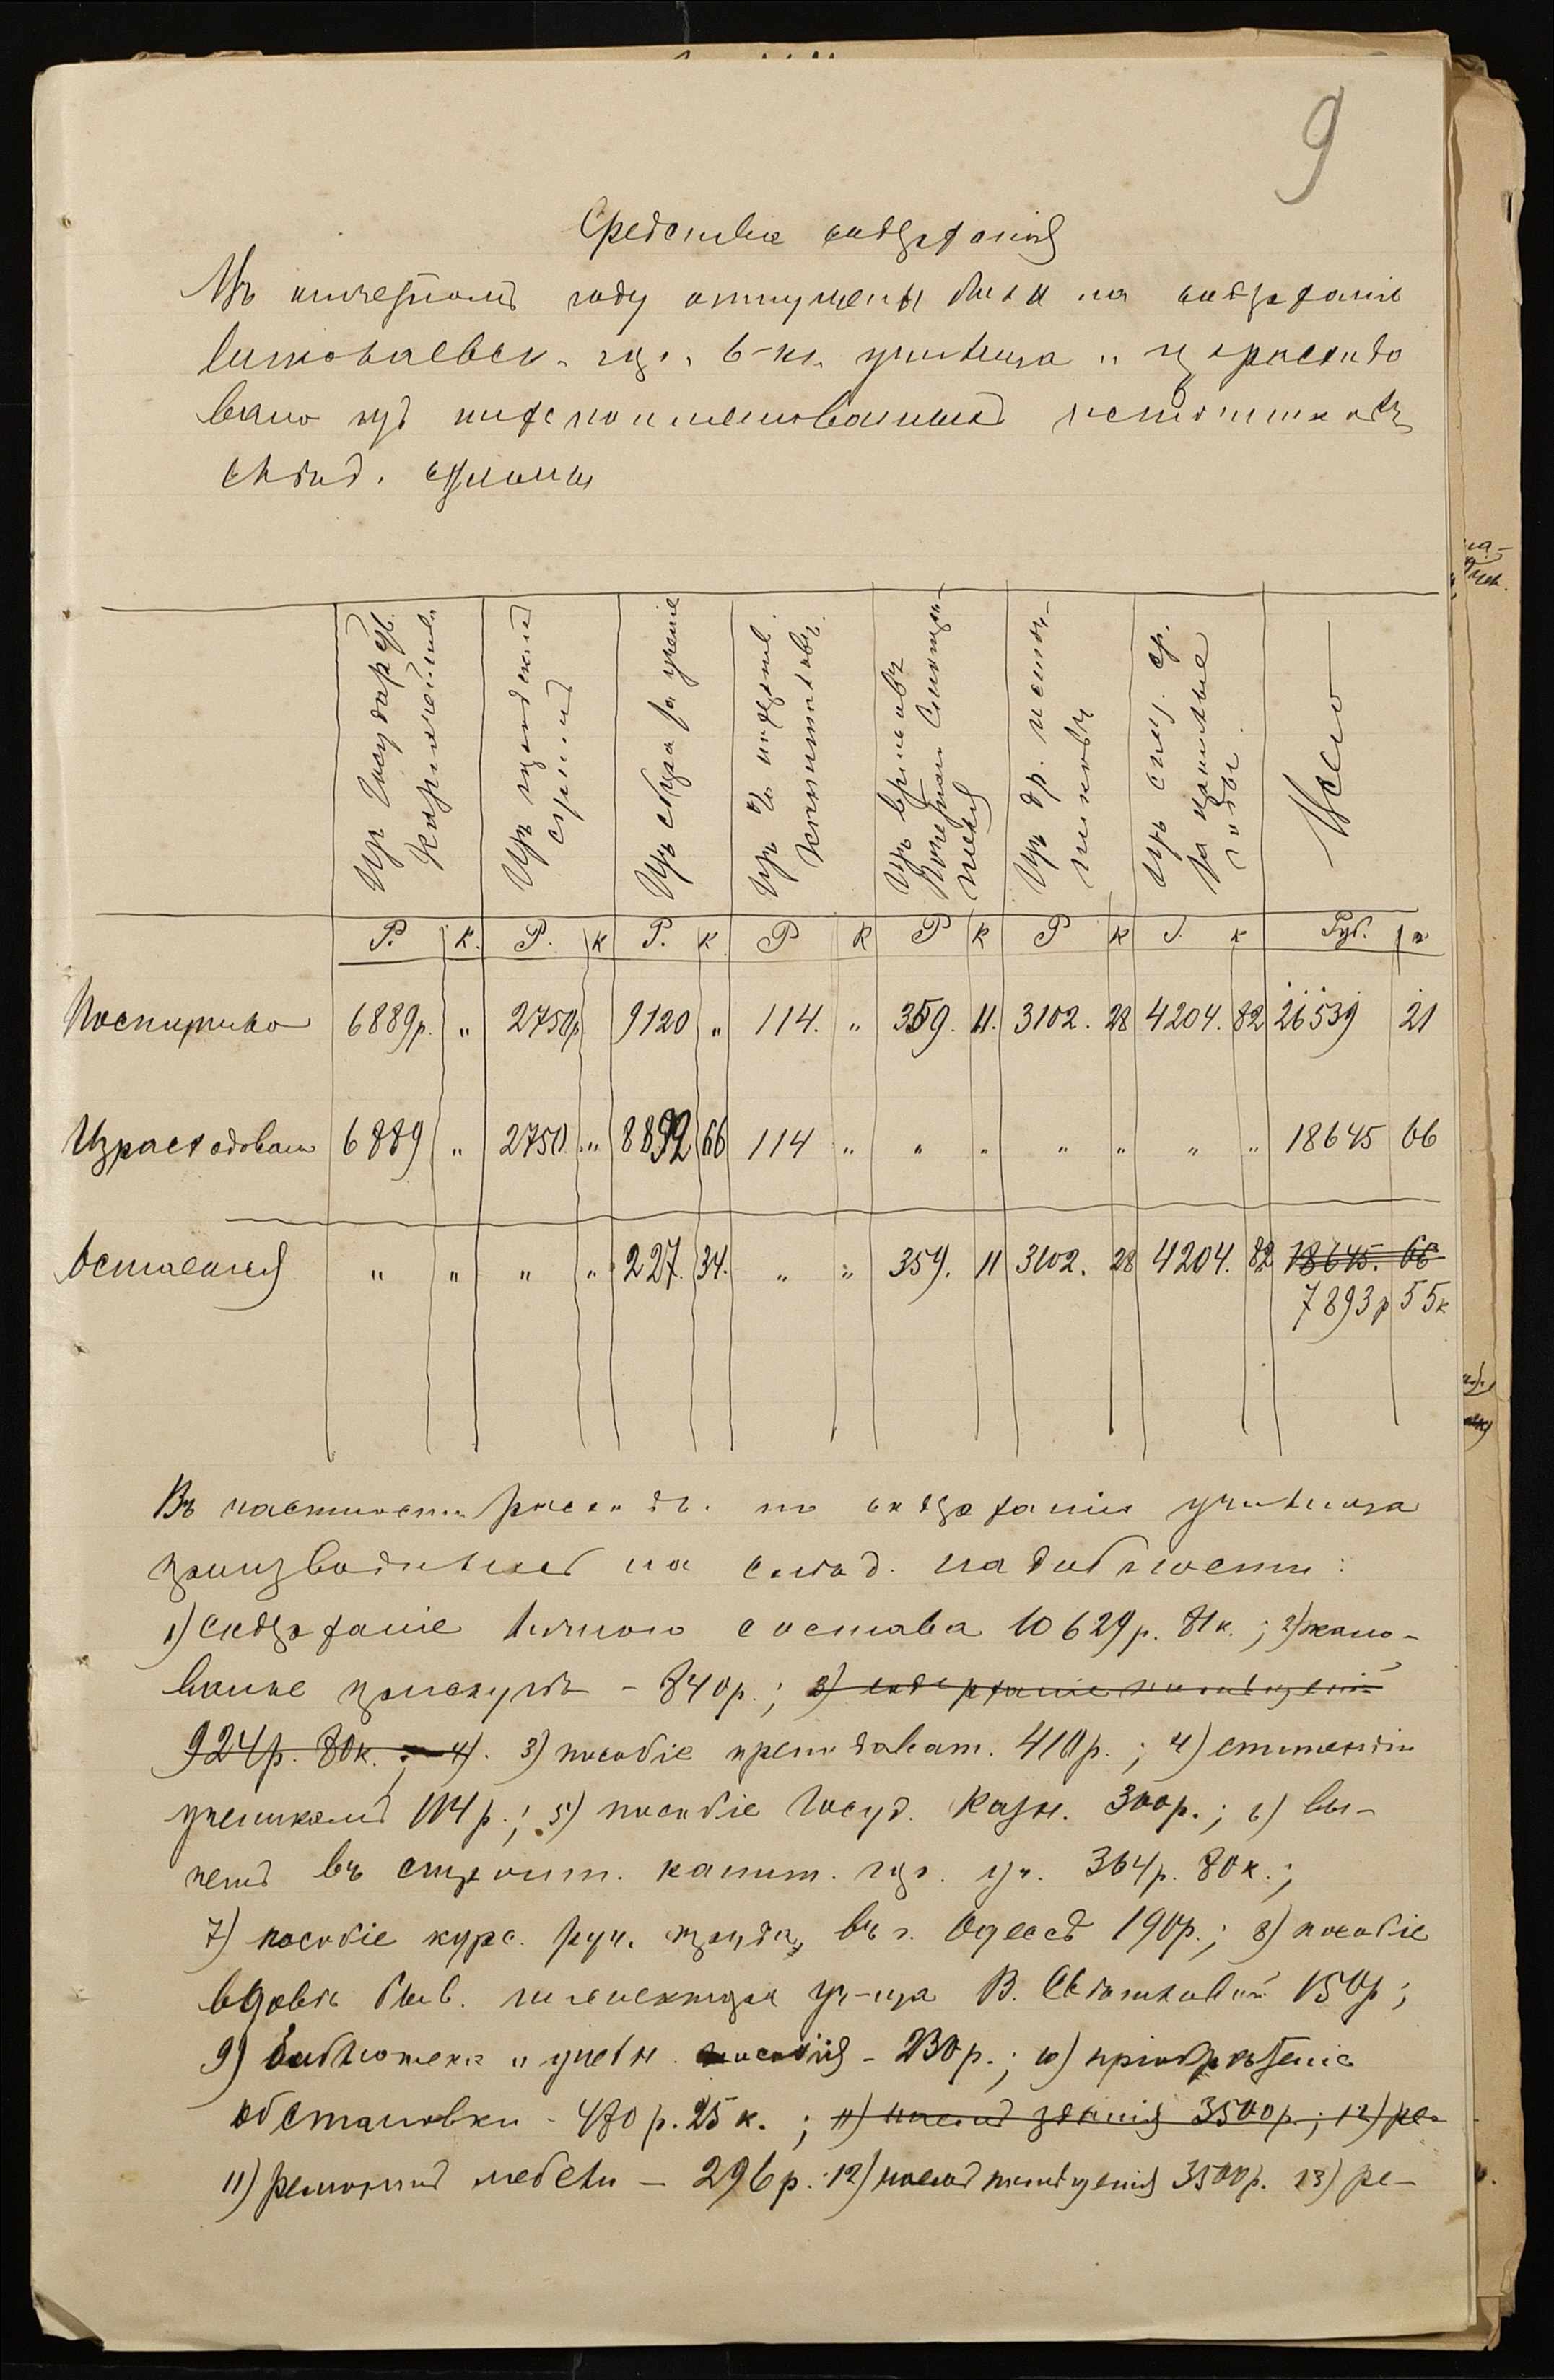 9
Средства содержанія
Въ отчетномъ году отпущены были на содержаніе
гор. 6-кл. училища и израсходо
вано изъ нижепоименованныхъ источниковъ
слѣд. суммы
Изъ Государств. Казначейства
Изъ городскихъ суммъ
Изъ сбора за ученіе
Изъ % пожертв. капиталовъ
Изъ
Изъ др. источниковъ
Изъ спец. ср. за прошлые годы.
Всего
Р. к. Р. к Р. к Р к Р к Р к Р. к Руб. к
Поступило 6889р. " 2750р 9120 " 114. " 359. 11. 3102. 28 4204. 82 26539 21
Израсходовано 6889 " 2750 " 8892 66 114 " " " " " " " 18645 66
Осталось " " " " 227. 34. " " 359. 11 3102. 28 4204. 82 18645. 66
7893р 55к
Въ частности расходъ по содержанію училища
производился на слѣд. надобности:
1) Содержаніе личнаго состава 10629р. 81к.; 2) жало-
ванье прислугѣ - 840р.; 3) содержаніе помѣщеній
924р. 80к.; 4). 3) пособіе преподават. 410р.; 4) стипендіи
ученикамъ 114р.; 5) пособіе Госуд. Казн. 300р.; 6) вы-
четъ въ строит. капит. гор. уч. 364р. 80к.;
7) пособіе курс. руч. труда въ г. Одессѣ 190р.; 8) пособіе
вдовѣ быв. инспектора уч-ща В. 150р;
9) библіотека и учебн. пособія - 230р.; 10) пріобрѣтеніе
обстановки - 470р. 25к.; 11) наемъ зданія 3500р.; 12) ре-
11) ремонтъ мебели - 296р. 12) наемъ помѣщенія 3500р. 13) ре-